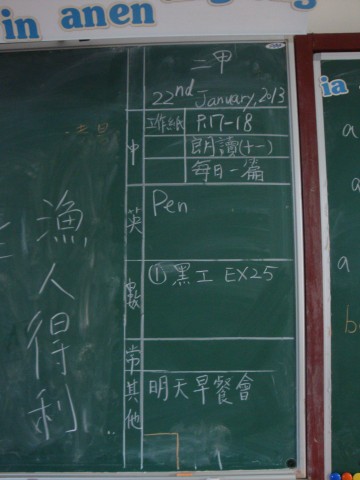 in anen
二甲
22nd January, 2013
中
工作紙 P.17-18
朗讀(十一)
每日一篇
英
Pen
數
① 黑工 EX25
常
其他
明天早餐會
漁人得利
ia
a
a
a
b